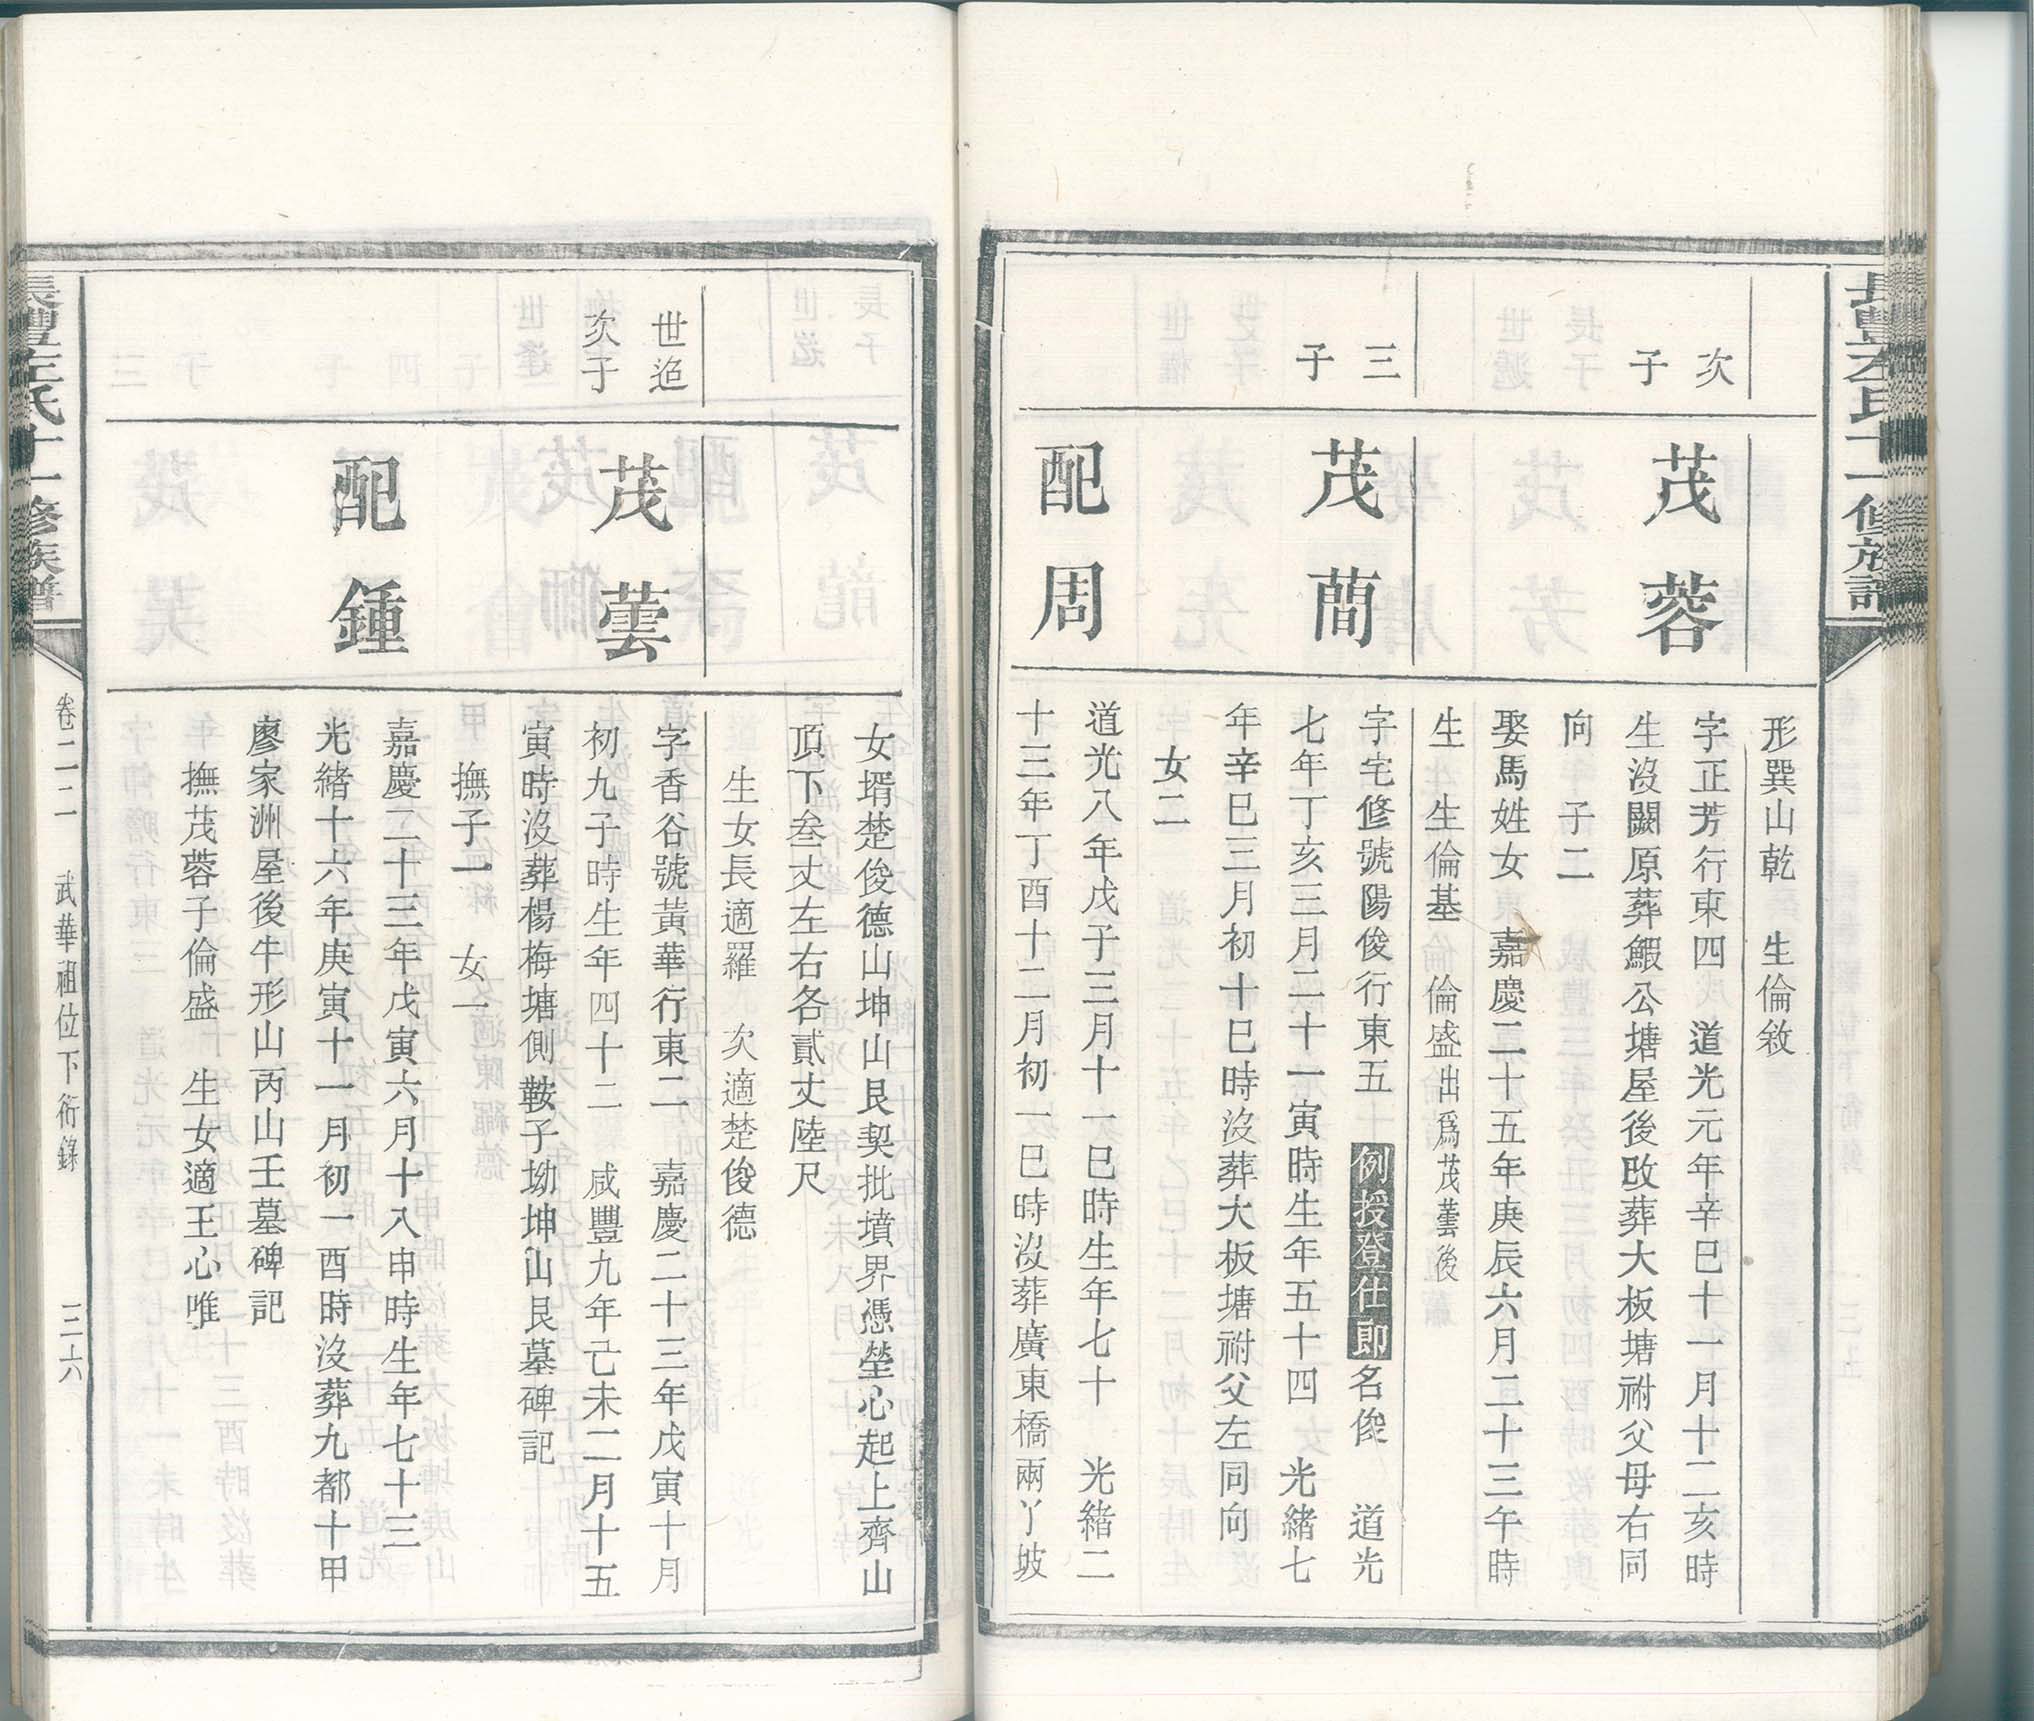 長豐左氏十一修族譜
形巽山乾　生倫敘
次子
茂蓉
字正芳行東四　道光元年辛巳十一月十二亥時
生沒闕原葬鰕公塘屋後改葬大板塘祔父母右同
向　子二
娶馬姓女　嘉慶二十五年庚辰六月二十三午時
生　生倫基　倫盛出爲茂蕓後
三子
茂蕳
字宅修號陽俊行東五　例授登仕郎名俊　道光
七年丁亥三月二十一寅時生年五十四　光緒七
年辛巳三月初十巳時沒葬大板塘祔父左同向
女二
配周
道光八年戊子三月十一巳時生年七十　光緒二
十三年丁酉十二月初一巳時沒葬廣東橋兩丫坡
女壻楚俊德山坤山艮契批墳界憑塋心起上齊山
頂下叁丈左右各貳丈陸尺
生女長適羅　次適楚俊德
世迨次子
茂蕓
字香谷號黃華行東二　嘉慶二十三年戊寅十月
初九子時生年四十二　咸豐九年己未二月十五
寅時沒葬楊梅塘側鞍子坳坤山艮墓碑記
撫子一　女一
配鍾
嘉慶二十三年戊寅六月十八申時生年七十三
光緒十六年庚寅十一月初一酉時沒葬九都十甲
廖家洲屋後牛形山丙山壬墓碑記
撫茂蓉子倫盛　生女適王心唯
長豐左氏十一修族譜
卷二二　武華祖位下衍錄　三六